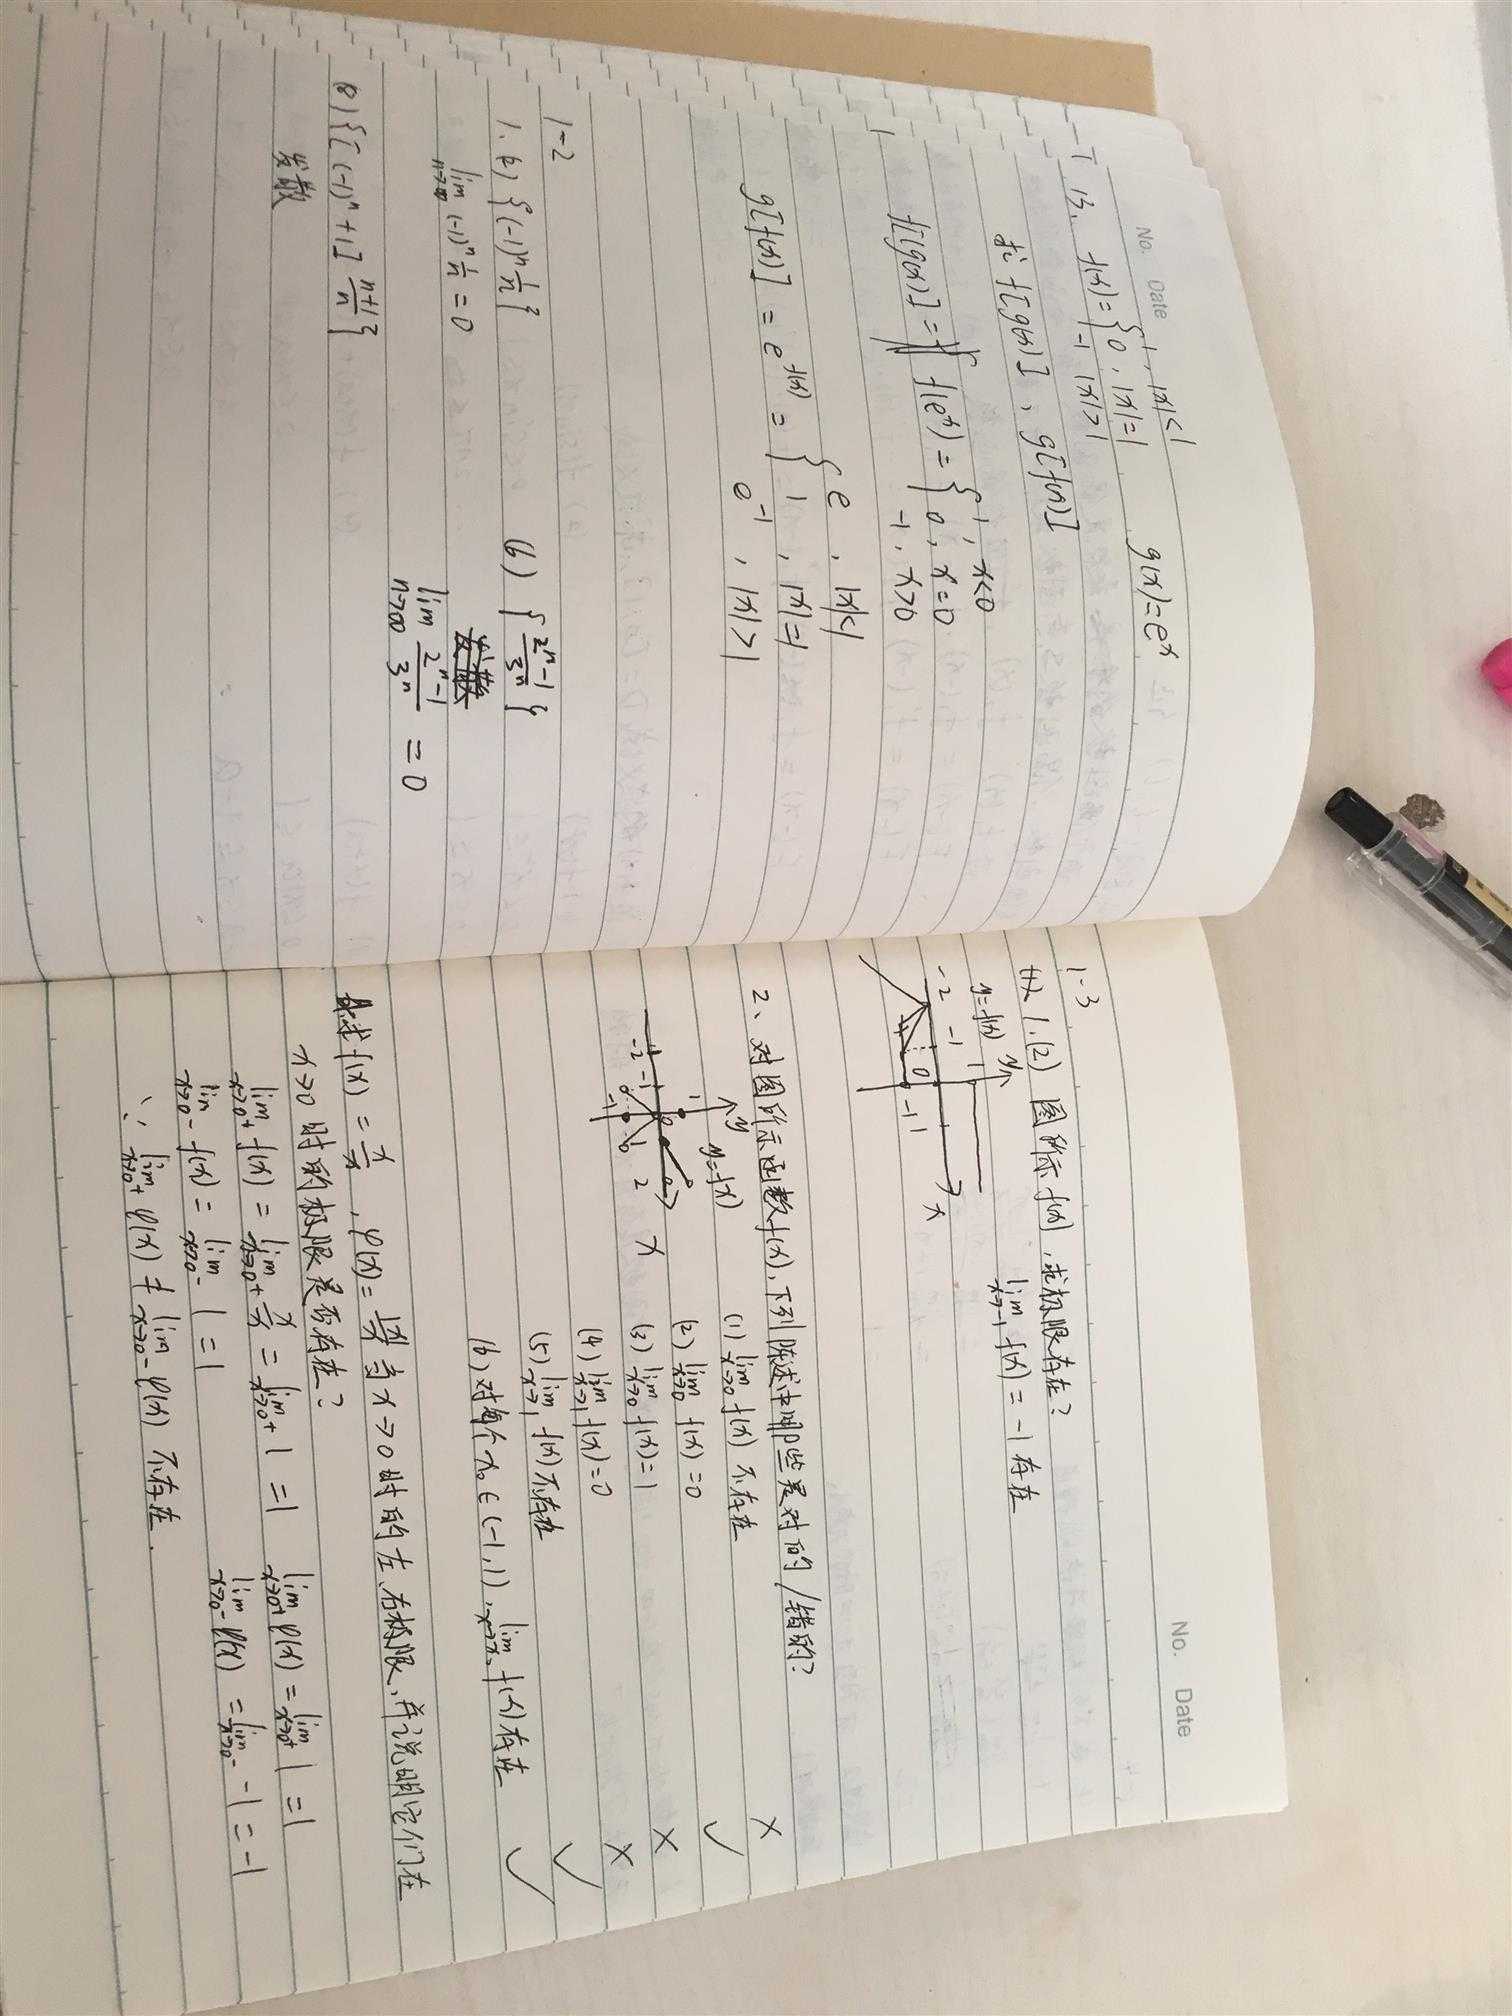 No.
Date
13. f(x)= { 1, |x|<1
0, |x|=1
-1 |x|>1
g(x)=eˣ
求 f[g(x)], g[f(x)]
f[g(x)] = f(eˣ) = { 1, x<0
0, x=0
-1, x>0
g[f(x)] = e^f(x) = { e, |x|<1
1, |x|=1
e⁻¹, |x|>1
1-2
1. (2) {(-1)ⁿ 1/n}
(6) { (2ⁿ-1)/3ⁿ }
lim n→∞ (-1)ⁿ 1/n = 0
lim n→∞ (2ⁿ-1)/3ⁿ = 0
8) {[(-1)ⁿ+1] (n+1)/n}
发散
No.
Date
1-3
1.(2) 图所示 f(x), 求极限存在?
y=f(x)
y
1
-2 -1 0
-1
x
lim x→-1 f(x) = -1 存在
2、对图所示函数f(x), 下列陈述中哪些是对的/错的?
y
y=f(x)
1
-2 -1 0 1 2 x
-1
(1) lim x→0 f(x) 不存在 ×
(2) lim x→0 f(x)=0 ✓
(3) lim x→0 f(x)=1 ×
(4) lim x→1 f(x)=0 ×
(5) lim x→1 f(x) 不存在 ✓
(6) 对每个 x₀∈(-1,1), lim x→x₀ f(x) 存在 ✓
求f(x) = x/x, φ(x)= |x|/x 当 x→0 时的左、右极限, 并说明它们在
x→0 时的极限是否存在?
lim x→0+ f(x) = lim x→0+ x/x = lim x→0+ 1 = 1
lim x→0+ φ(x) = lim x→0+ 1 = 1
lim x→0- f(x) = lim x→0- 1 = 1
lim x→0- φ(x) = lim x→0- -1 = -1
∵ lim x→0+ φ(x) ≠ lim x→0- φ(x) 不存在.